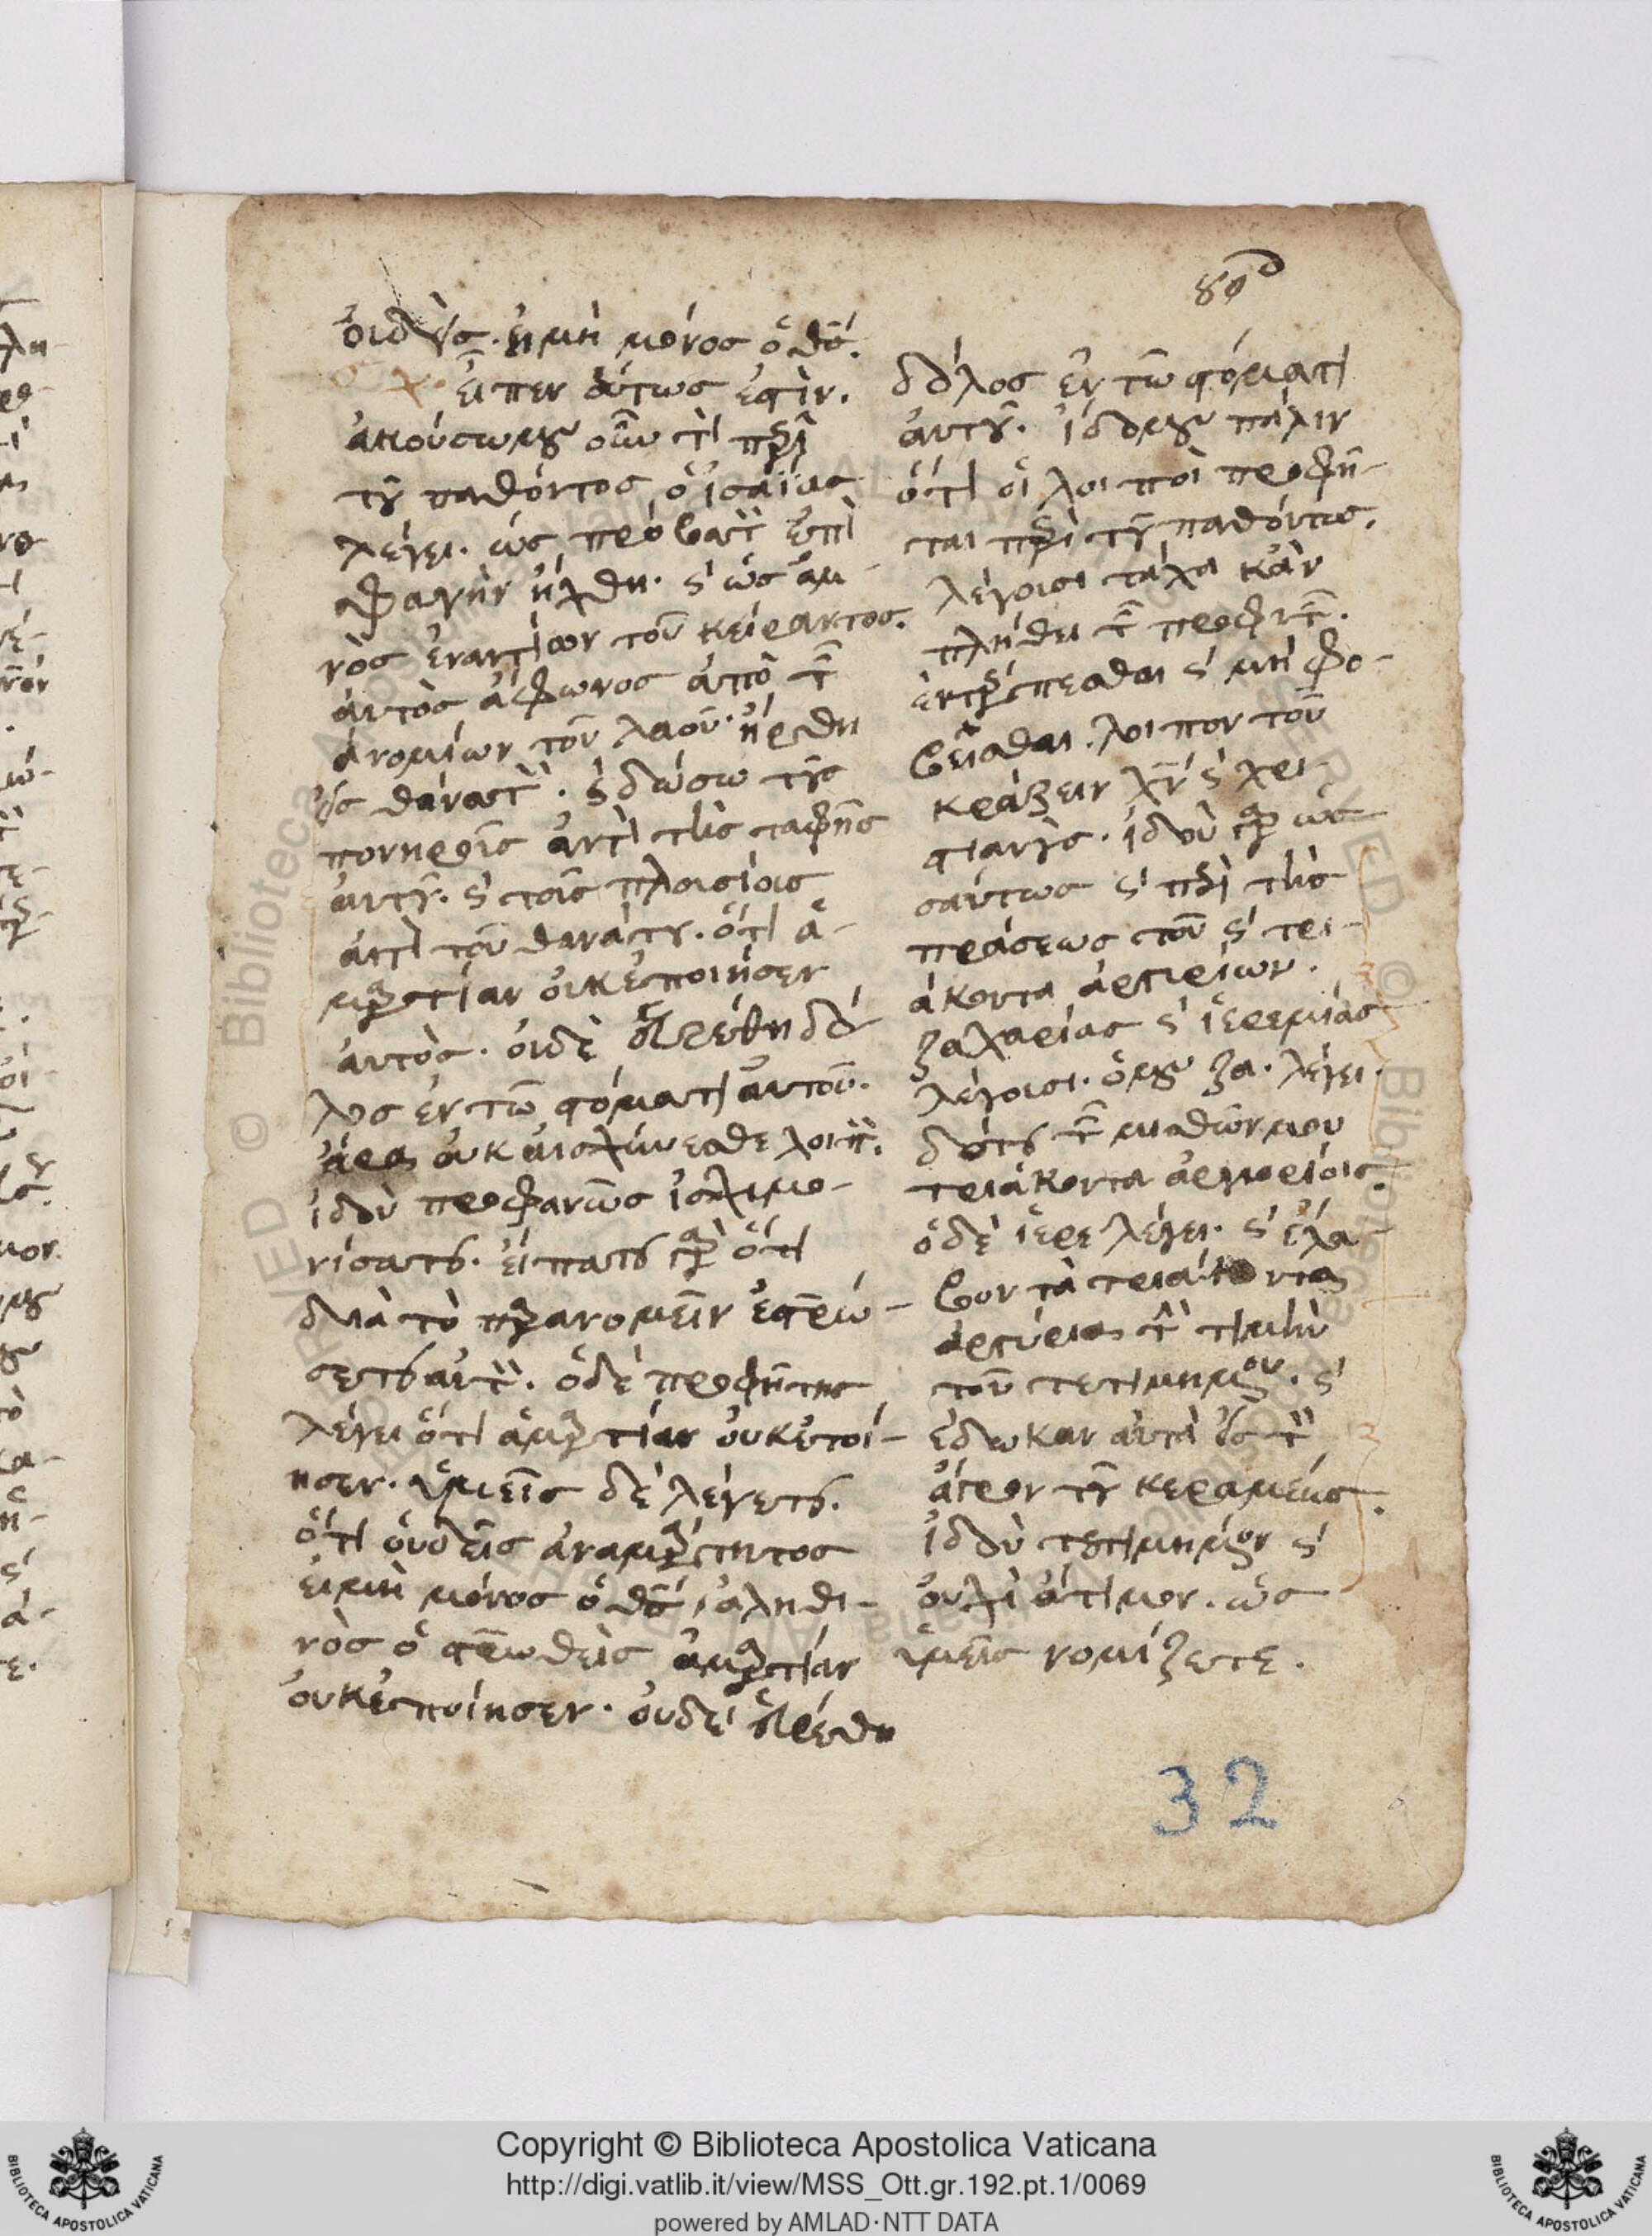 οὐδεὶς. εἰ μὴ μόνος ὁ θς.
χ. εἴπερ οὕτως ἐστίν.
ἀκούσωμεν οὖν τί περὶ
τοῦ παθόντος ὁ ἰσαΐας
λέγει. ὡς πρόβατ ἐπὶ
σφαγὴν ἤχθη. ϛ ὡς ἀμ-
νὸς ἐναντίον τοῦ κείραντος.
αὐτὸς ἄφωνος ἀπὸ τ
ἀνομιῶν τοῦ λαοῦ. ἤρθη
εἰς θάνατ. ϛ δώσω τοὺς
πονηροῖς ἀντὶ τῆς ταφῆς
αὐτοῦ. ϛ τοῖς πλουσίοις
ἀντὶ τοῦ θανάτου. ὅτι ἁ-
μαρτίαν οὐκ ἐποίησεν
αὐτὸς. οὐδὲ εὑρέθη δό-
λος ἐν τῶ στόματι αὐτοῦ.
ἆρα οὐκ αἰσχύνεσθε λοιπ.
ἰδοὺ προφανῶς
εἴπατε γὰρ ὅτι
διὰ τὸ παρανομεῖν ἐσταυρώ-
σετε αὐτ. ὁ δὲ προφήτης
λέγει ὅτι ἁμαρτίαν οὐκ ἐποί-
ησεν. ὑμεῖς δὲ λέγετε.
ὅτι οὐδεὶς ἀναμάρτητος
εἰ μὴ μόνος ὁ θς, ἀληθι-
νὸς ὁ σταυρωθεὶς ἁμαρτίαν
οὐκ ἐποίησεν. οὐδὲ εὑρέθη
δόλος ἐν τῶ στόματι
αὐτοῦ. ἴδομεν πάλιν
ὅτι οἱ λοιποὶ προφῆ-
ται περὶ τοῦ παθόντος.
λέγουσι τάχα κἂν
πλήθει τ προφητ.
ἐντρέπεσθαι ϛ μὴ φο-
βεῖσθαι. λοιπὸν τοῦ
κράζειν χν ϛ χρι-
στιανοὺς. ἰδοὺ γὰρ ὡς
σαύτως ϛ περὶ τῆς
πράσεως τοῦ ϛ τρι-
άκοντα ἀργυρίων.
ζαχαρίας ϛ ἱερεμίας
λέγουσι. ὁ μὲν ζα. λέγει.
δότε τ μισθῶν μου
τριάκοντα ἀργυρίοις.
ὁ δὲ ἱερε λέγει. ϛ ἔλα-
βον τὰ τριάκοντα
ἀργύρια τ τιμὴν
τοῦ τετιμημένου. ϛ
ἔδωκαν αὐτὰ εἰς τ
ἀγρὸν τοῦ κεραμέως.
ἰδοὺ τετιμημένον ϛ
οὐχὶ ἄτιμον. ὡς
ὑμεῖς νομίζετε.
32
Copyright © Biblioteca Apostolica Vaticana
http://digi.vatlib.it/view/MSS_Ott.gr.192.pt.1/0069
powered by AMLAD·NTT DATA